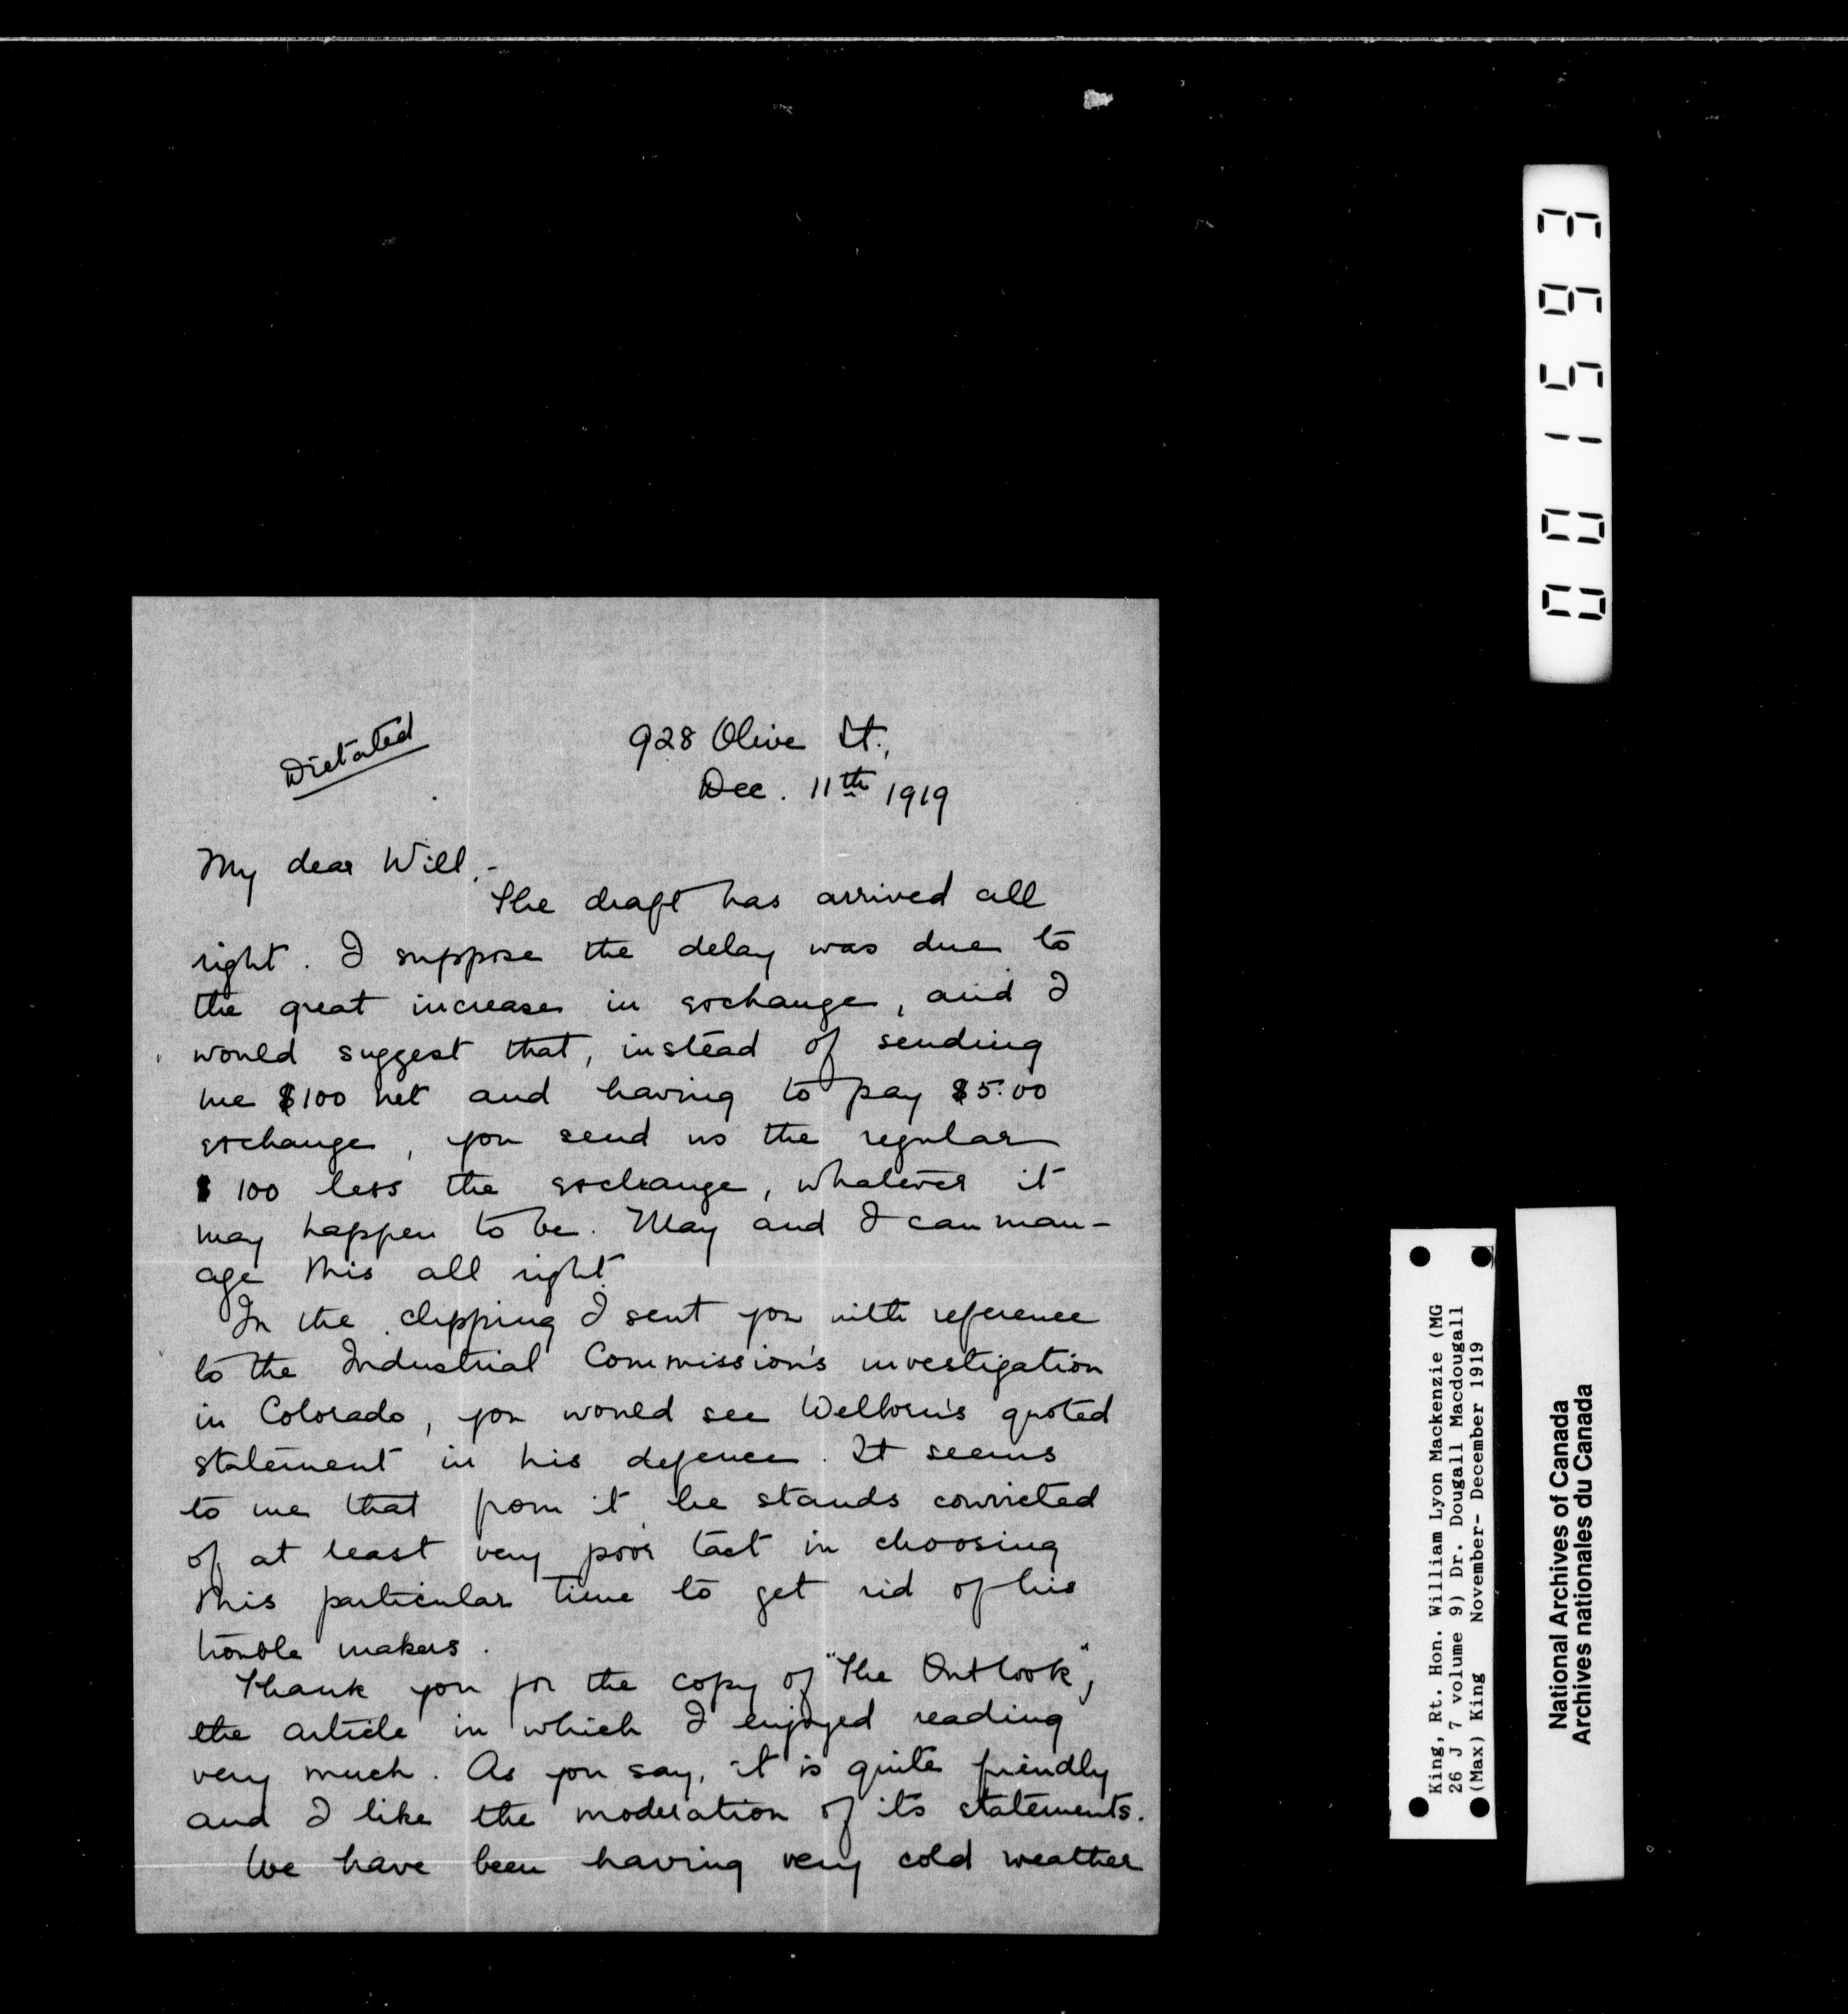 Dictated
928 Olive St.,
Dec. 11th 1919
My dear Will,-
The draft has arrived all
right. I suppose the delay was due to
the great increase in exchange, and I
would suggest that, instead of sending
me $100 net and having to pay $5.00
exchange, you send us the regular
$100 less the exchange, whatever it
may happen to be. May and I can man-
age this all right.
In the clipping I sent you with reference
to the Industrial Commission's investigation
in Colorado, you would see Welborn's quoted
statement in his defence. It seems
to me that from it he stands convicted
of at least very poor tact in choosing
this particular time to get rid of his
trouble makers.
Thank you for the copy of "The Outlook",
the article in which I enjoyed reading
very much. As you say, it is quite friendly
and I like the moderation of its statements.
We have been having very cold weather
King, Rt. Hon. William Lyon Mackenzie (MG
26 J 7 volume 9) Dr. Dougall Macdougall
(Max) King November- December 1919
National Archives of Canada
Archives nationales du Canada
001593